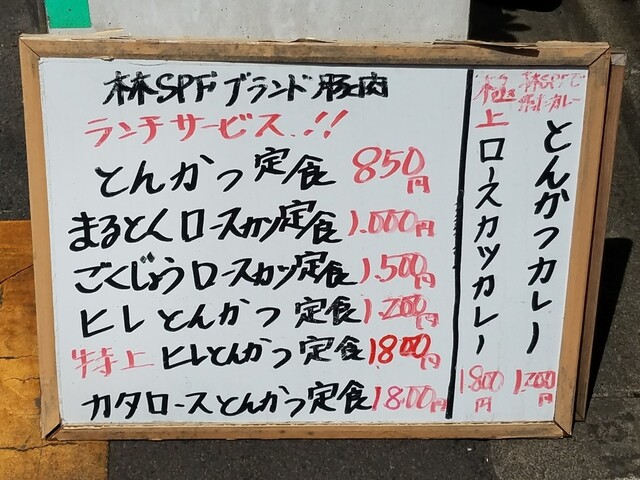 林SPFブランド豚肉
ランチサービス!!
とんかつ定食 850円
まるとんロースカツ定食 1.000円
ごくじょうロースカツ定食 1.500円
ヒレとんかつ定食 1.200円
特上ヒレとんかつ定食 1.800円
カタロースとんかつ定食 1.800円
林SPFモ
カレー
とんかつカレー
1.200円
極上
ロースカツカレー
1.800円